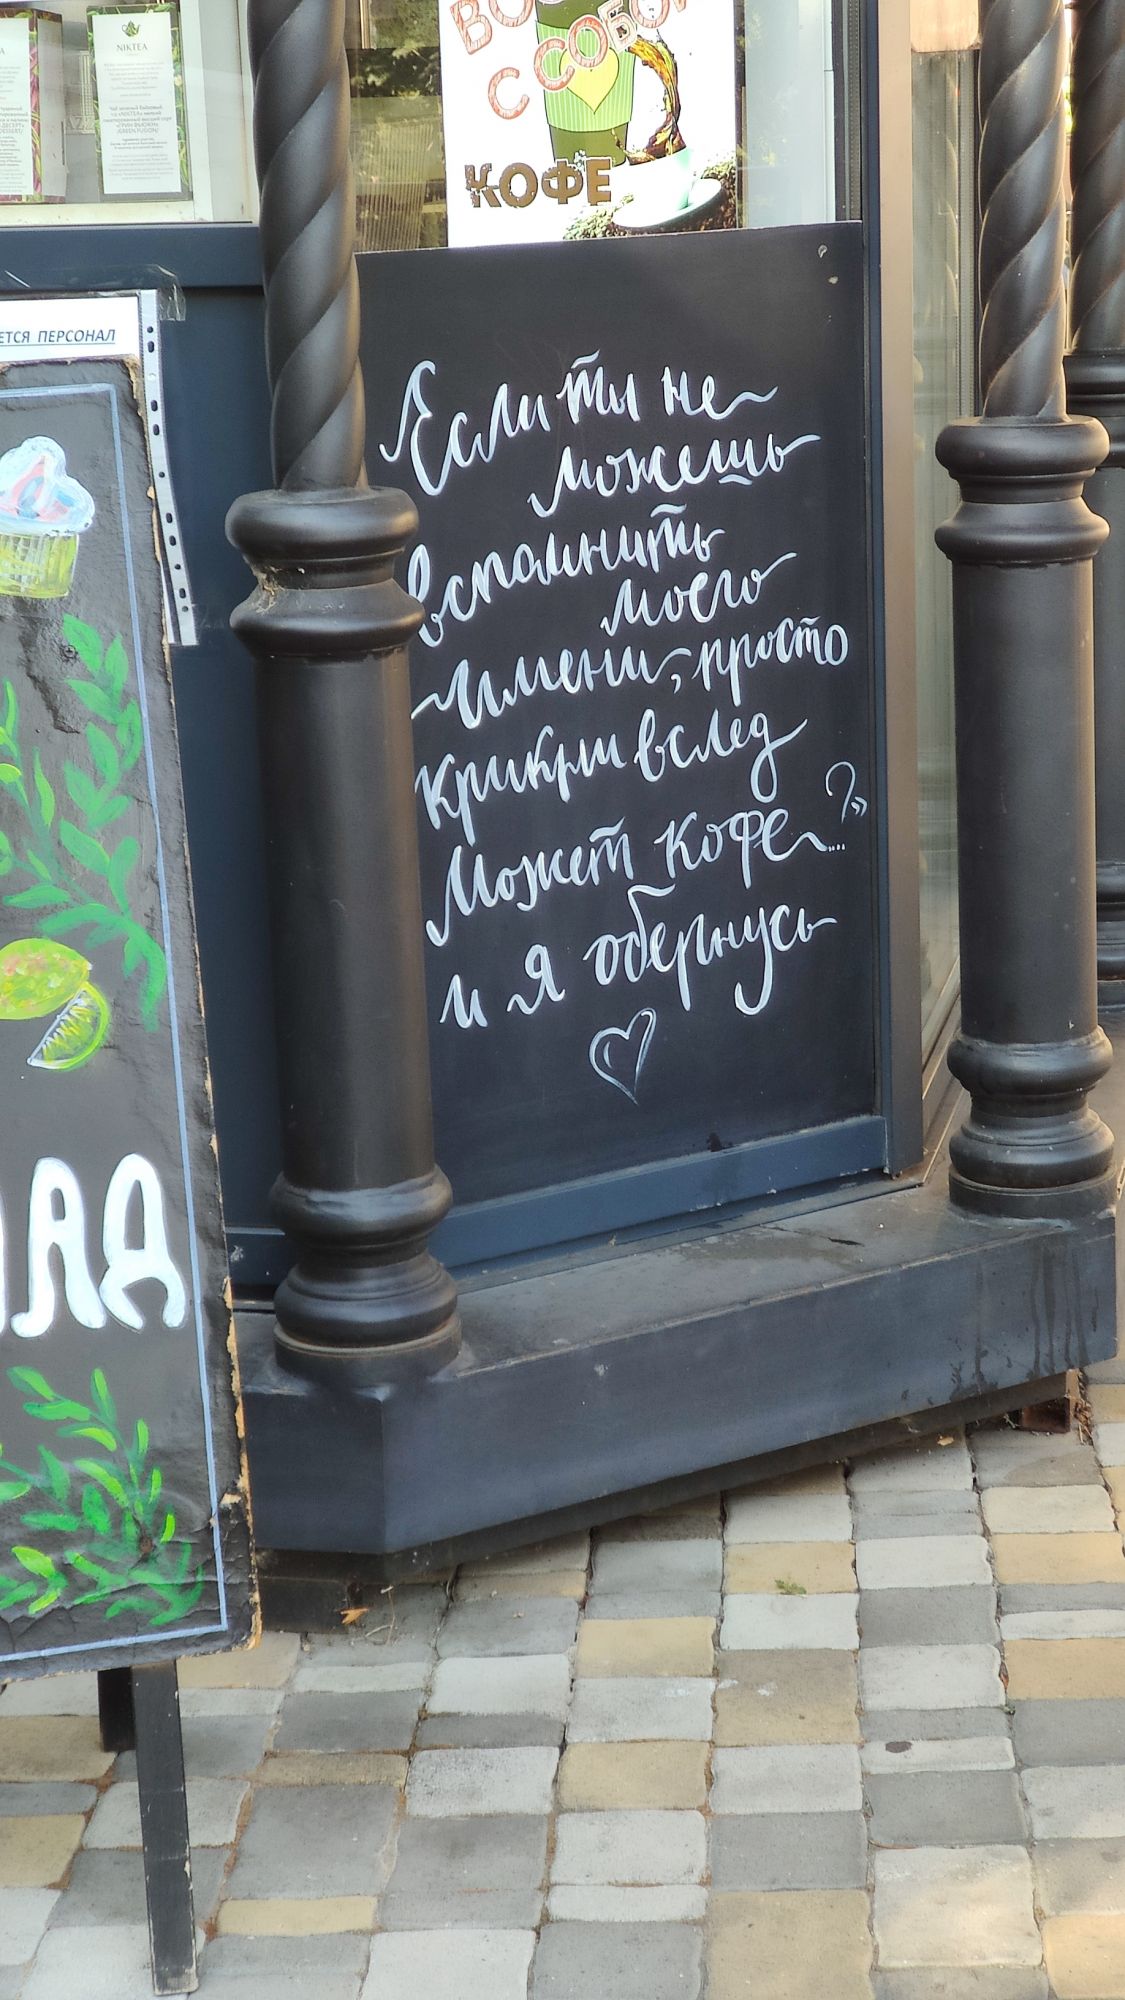 NIKTEA
С СОБОЙ
КОФЕ
ПЕРСОНАЛ
Если ты не
можешь
вспомнить
моего
имени, просто
крикни вслед
Может кофе...?»
и я обернусь